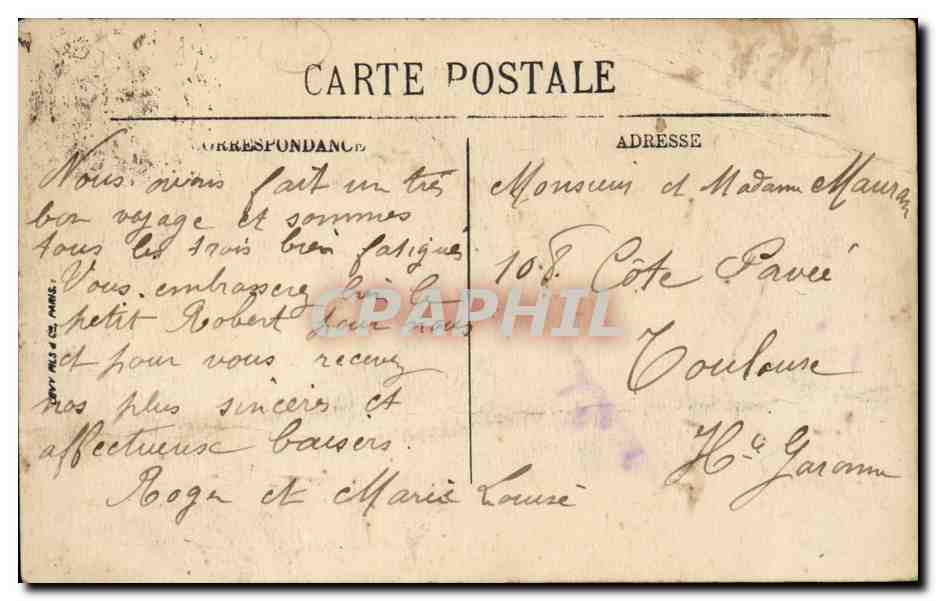 CARTE POSTALE
CORRESPONDANCE
ADRESSE
Nous avons fait un très
bon voyage et sommes
tous les trois bien fatigués
Vous embrasserez bien le
petit Robert pour nous
et pour vous recevez
nos plus sincères et
affectueux baisers
Roger et Marie Louise
Monsieur et Madame Mauran
108 Côte Pavée
Toulouse
Hte Garonne
LEVY FILS & Cie PARIS.
CPAPHIL